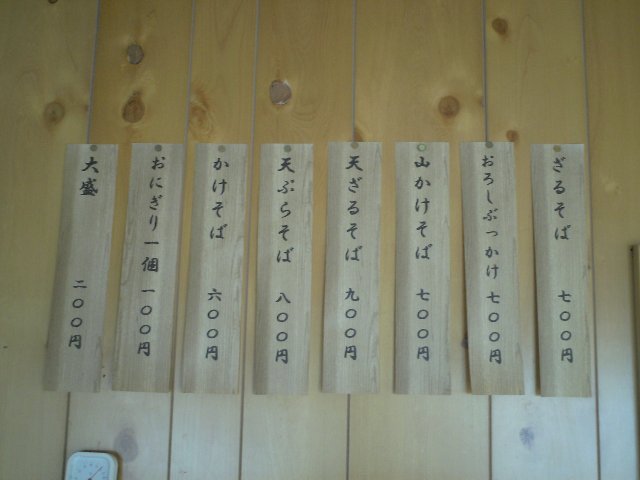 ざるそば 七〇〇円
おろしぶっかけ 七〇〇円
山かけそば 七〇〇円
天ざるそば 九〇〇円
天ぷらそば 八〇〇円
かけそば 六〇〇円
おにぎり一個 一〇〇円
大盛 二〇〇円